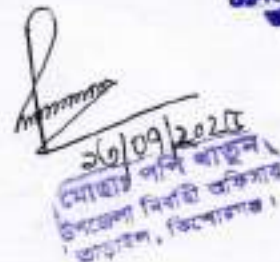 ২৩/০9/202৪
মোছাঃ পপি খাতুন
উপজেলা নির্বাহী অফিসার
তাড়াইল, কিশোরগঞ্জ।